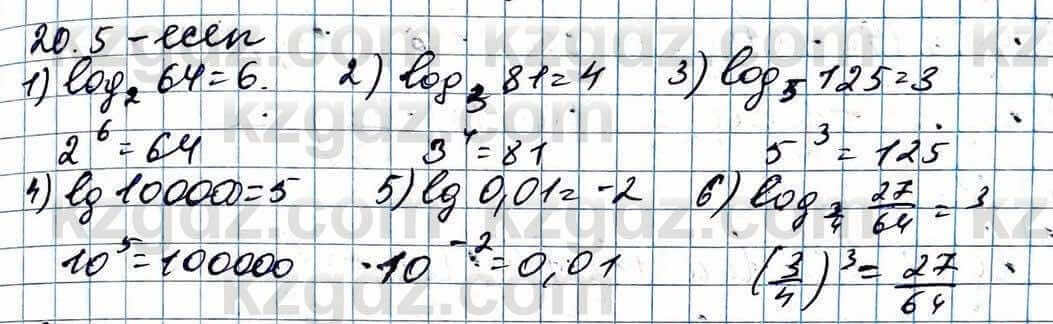 20.5-есеп
1) log₂ 64=6. 2) log₃ 81=4 3) log₅ 125=3
2⁶=64 3⁴=81 5³=125
4) lg 100000=5 5) lg 0,01=-2 6) log_{3/4} 27/64 = 3
10⁵=100000 10⁻²=0,01 (3/4)³=27/64
kzgdz.com